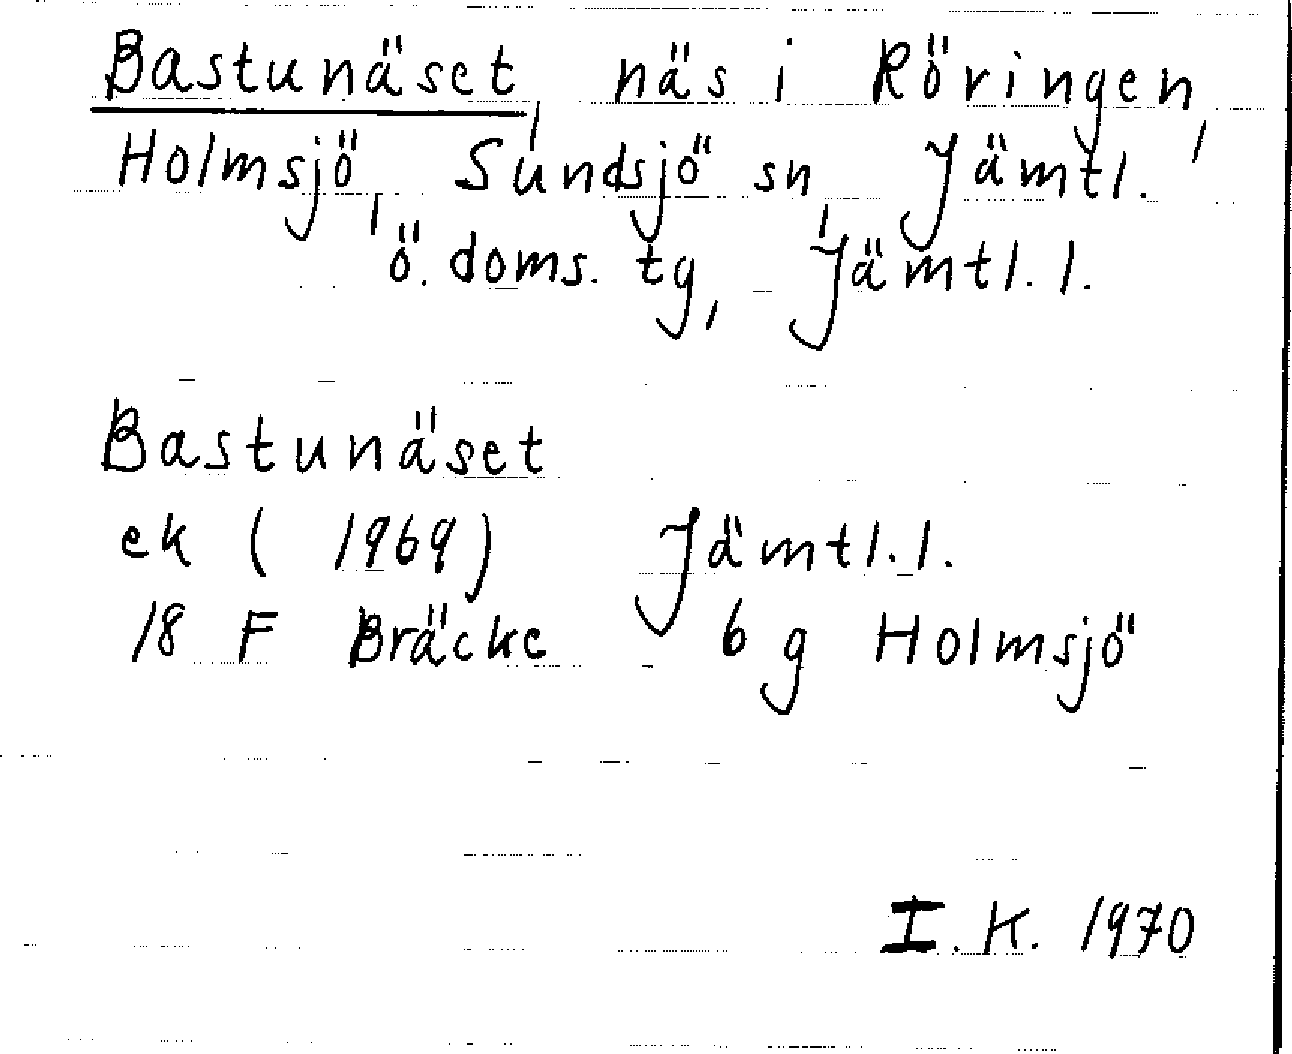 Bastunäset, näs i Röringen,
Holmsjö, Sundsjö sn, Jämtl.
ö. doms. tg, Jämtl. l.
Bastunäset
ek (1969) Jämtl. l.
18 F Bräcke 6 g Holmsjö
I. K. 1970